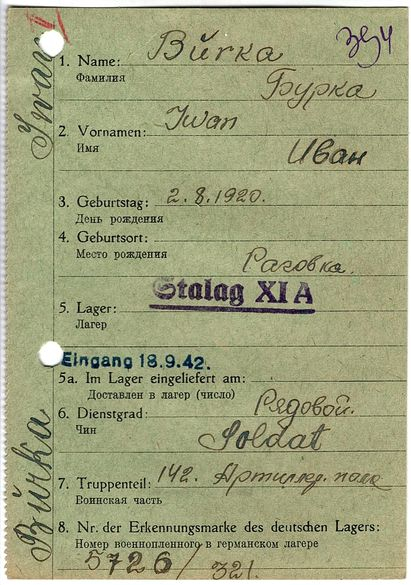 Iwan
Bürka
324
1. Name: Bürka
Фамилия
Бурка
2. Vornamen: Iwan
Имя
Иван
3. Geburtstag: 2.8.1920.
День рождения
4. Geburtsort:
Место рождения
Раговка.
Stalag XI A
5. Lager:
Лагер
Eingang 18.9.42.
5a. Im Lager eingeliefert am:
Доставлен в лагер (число)
6. Dienstgrad: Рядовой.
Чин
Soldat
7. Truppenteil: 142. Артиллер. полк
Воинская часть
8. Nr. der Erkennungsmarke des deutschen Lagers:
Номер военнопленного в германском лагере
5726/321.